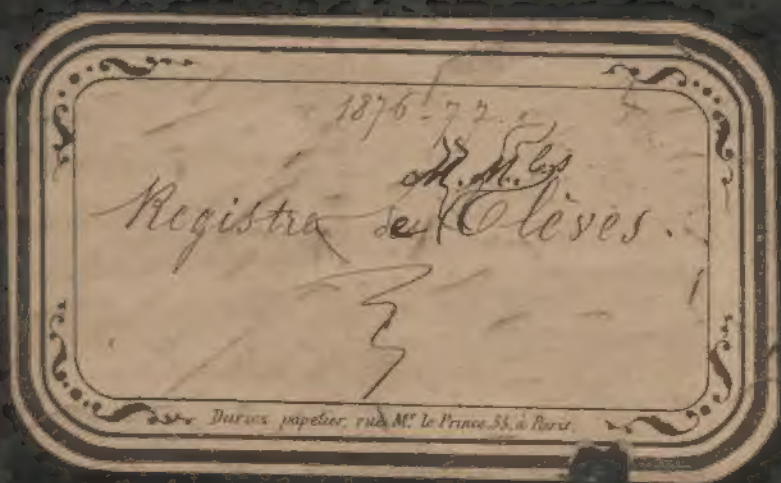 1876-77.
M.M. les
Registre de Elèves.
Duriez papetier, rue Mr le Prince, 55, à Paris.